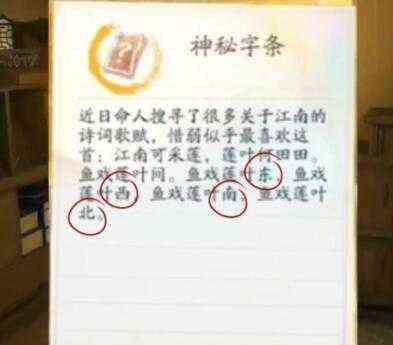 神秘字条
近日命人搜寻了很多关于江南的
诗词歌赋，惜弱似乎最喜欢这
首：江南可采莲，莲叶何田田。
鱼戏莲叶间。鱼戏莲叶东，鱼戏
莲叶西，鱼戏莲叶南，鱼戏莲叶
北。